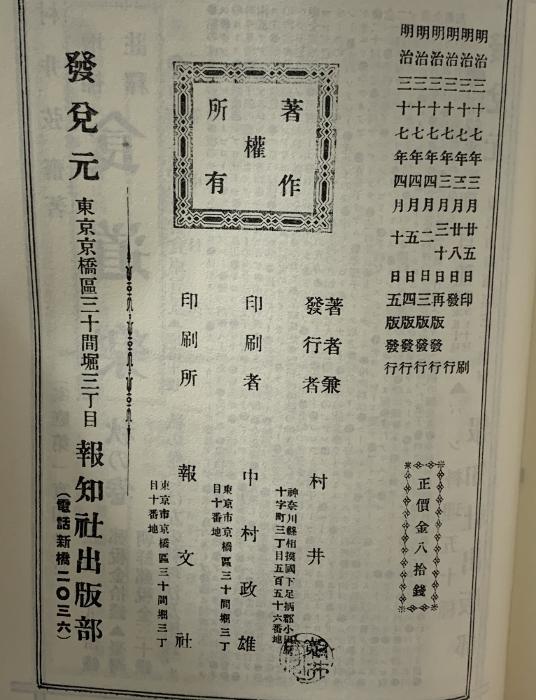 明治三十七年三月廿五日印刷
明治三十七年三月廿八日發行
明治三十七年三月三十日再版發行
明治三十七年四月二日三版發行
明治三十七年四月五日四版發行
明治三十七年四月十日五版發行
正價金八拾錢
著作
權
所有
著者兼
發行者
神奈川縣相摸國下足柄郡小田原
十字町三丁目五百五十六番地
村井
印刷者
東京市京橋區三十間堀三丁
目十番地
中村政雄
印刷所
東京市京橋區三十間堀三丁
目十番地
報文社
發兌元
東京京橋區三十間堀三丁目
報知社出版部
(電話新橋二〇三六)